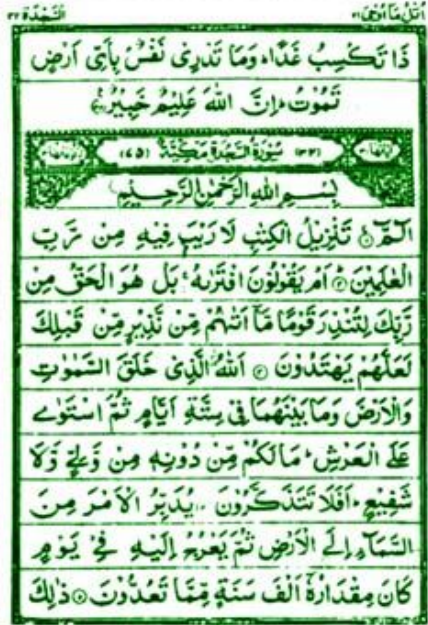 اُتْلُ مَاۤ اُوْحِىَ ٢١ السَّجْدَة ٣٢
ذَا تَكْسِبُ غَدًاؕ وَمَا تَدْرِىْ نَفْسٌۢ بِاَىِّ اَرْضٍ
تَمُوْتُؕ اِنَّ اللّٰهَ عَلِيْمٌ خَبِيْرٌ
(٣٢) سُوْرَةُ السَّجْدَةِ مَكِّيَّةٌ (٧٥)
بِسْمِ اللّٰهِ الرَّحْمٰنِ الرَّحِيْمِ
الٓمّٓ ۚ تَنْزِيْلُ الْكِتٰبِ لَا رَيْبَ فِيْهِ مِنْ رَّبِّ
الْعٰلَمِيْنَ ؕ اَمْ يَقُوْلُوْنَ افْتَرٰىهُ ۚ بَلْ هُوَ الْحَقُّ مِنْ
رَّبِّكَ لِتُنْذِرَ قَوْمًا مَّاۤ اَتٰىهُمْ مِّنْ نَّذِيْرٍ مِّنْ قَبْلِكَ
لَعَلَّهُمْ يَهْتَدُوْنَ ۞ اَللّٰهُ الَّذِىْ خَلَقَ السَّمٰوٰتِ
وَالْاَرْضَ وَمَا بَيْنَهُمَا فِىْ سِتَّةِ اَيَّامٍ ثُمَّ اسْتَوٰى
عَلَى الْعَرْشِؕ مَا لَكُمْ مِّنْ دُوْنِهٖ مِنْ وَّلِىٍّ وَّلَا
شَفِيْعٍؕ اَفَلَا تَتَذَكَّرُوْنَ يُدَبِّرُ الْاَمْرَ مِنَ
السَّمَآءِ اِلَى الْاَرْضِ ثُمَّ يَعْرُجُ اِلَيْهِ فِىْ يَوْمٍ
كَانَ مِقْدَارُهٗۤ اَلْفَ سَنَةٍ مِّمَّا تَعُدُّوْنَ ۞ ذٰلِكَ